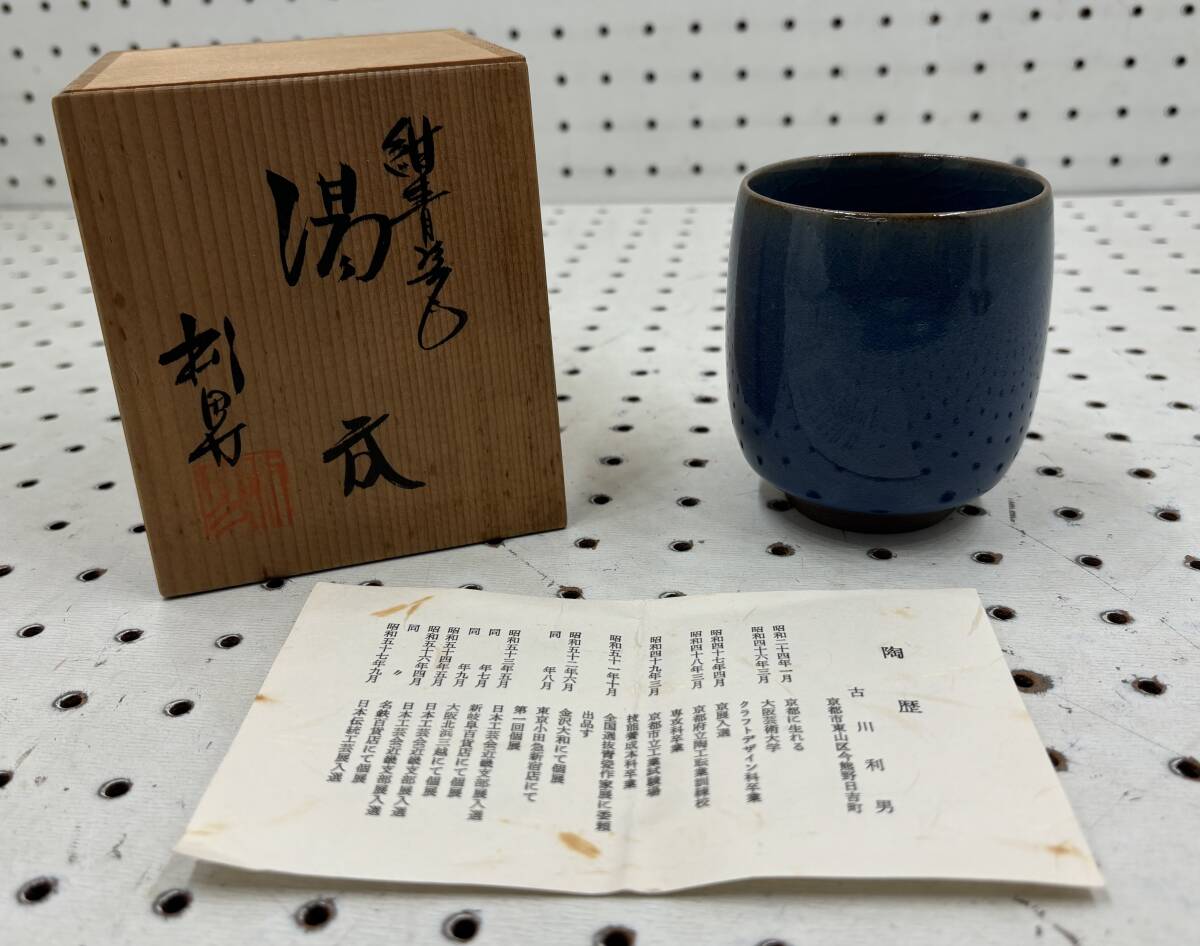 紺青瓷
湯呑
利男
陶歴
京都市東山区今熊野日吉町
古川利男
昭和二十四年一月 京都に生れる
昭和四十六年三月 大阪芸術大学
クラフトデザイン科卒業
昭和四十七年四月 京展入選
昭和四十八年三月 京都府立陶工職業訓練校
専攻科卒業
昭和四十九年三月 京都市立工業試験場
技能養成本科卒業
昭和五十一年十月 全国選抜青瓷作家展に委頼
出品す
昭和五十二年六月 金沢大和にて個展
同 年八月 東京小田急新宿店にて
第一回個展
昭和五十三年五月 日本工芸会近畿支部展入選
同 年七月 新岐阜百貨店にて個展
同 年九月 大阪北浜三越にて個展
昭和五十四年五月 日本工芸会近畿支部展入選
昭和五十六年四月 日本工芸会近畿支部展入選
同 〃 名鉄百貨店にて個展
昭和五十七年九月 日本伝統工芸展入選